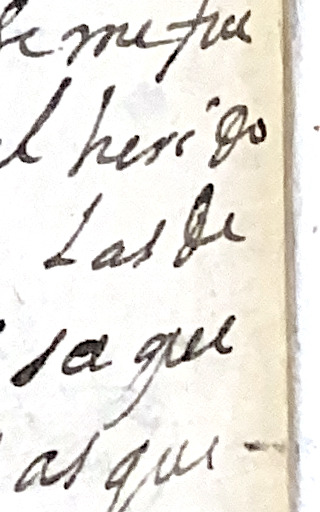 se me fue
el herido
Las de
sa que
as que -